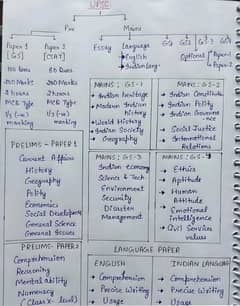 UPSC
Pre
Mains
Paper 1
[GS]
Paper 2
[CSAT]
100 Ques
80 Ques
200 Marks
200 Marks
2 hours
2 hours
MCQ Type
MCQ Type
1/3 (-)ve
marking
1/3 (-)ve
marking
Essay
Language
English
Indian Lang
GS1
GS2
GS3
GS4
Optional
Paper-1
Paper-2
PRELIMS - PAPER 1
Current Affairs
History
Geography
Polity
Economics
Social Development
General Science
General Issues
PRELIMS- PAPER 2
Comprehension
Reasoning
Mental ability
Numeracy
(Class X- level)
MAINS : GS-1
Indian heritage
Modern Indian
history
World History
Indian Society
Geography
MAINS : GS-2
Indian Constitution
Indian Polity
Indian Governance
Social Justice
International
Relations
MAINS : GS-3
Indian economy
Science & Tech
Environment
Security
Disaster
Management
MAINS : GS-4
Ethics
Aptitude
Human
Attitude
Emotional
intelligence
Civil Service
values
LANGUAGE PAPER
ENGLISH
Comprehension
Precise Writing
Usage
INDIAN LANGUAGE
Comprehension
Precise Writing
Usage